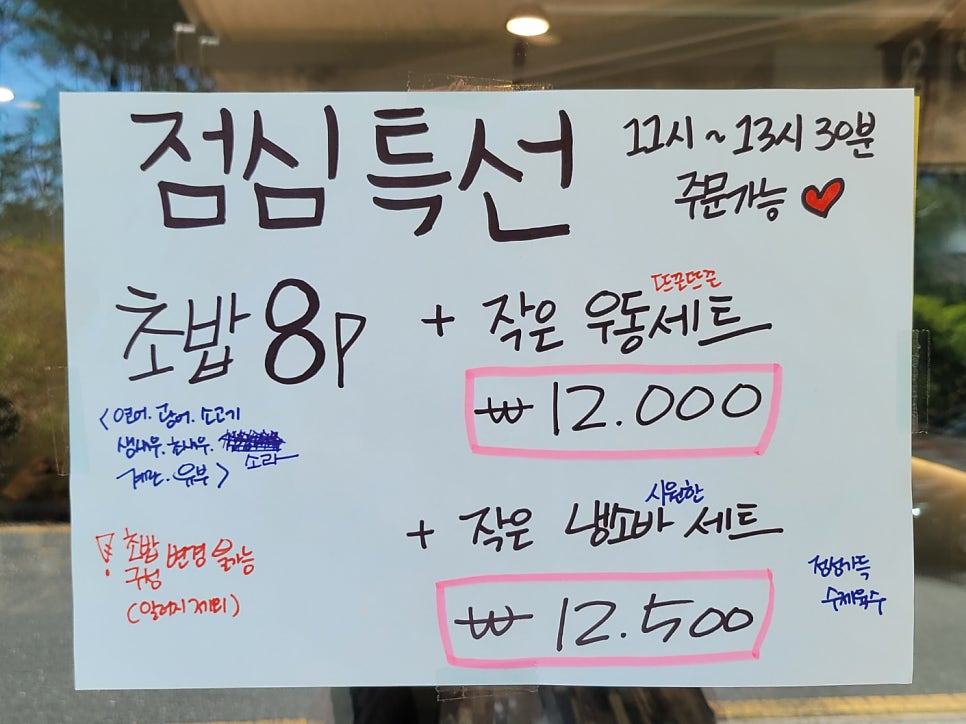 점심 특선
11시 ~ 13시 30분
주문가능
초밥 8p
+ 작은 우동세트
뜨끈뜨끈
₩ 12.000
<연어. 광어. 소고기
생새우. 초새우.
소라
계란. 유부>
+ 작은 냉소바 세트
시원한
₩ 12.500
초밥 변경 불가능
구성
(알러지 제외)
정성가득
수제육수